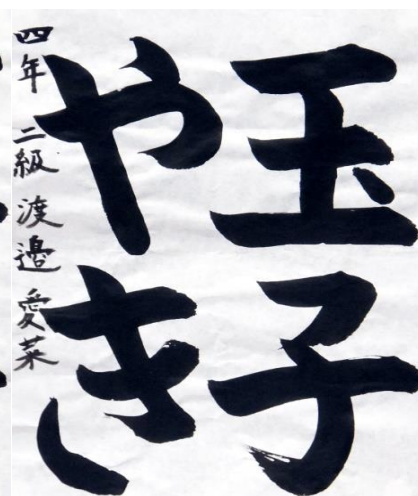 玉子
やき
四年 二級 渡邉 愛菜